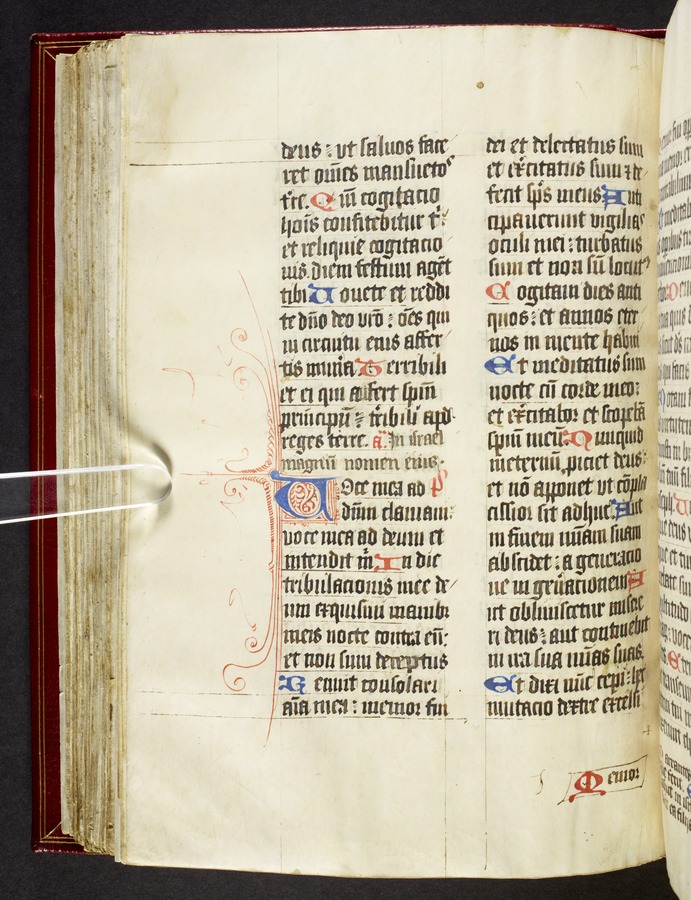 deus : ut saluos face
ret om̅es mansueto⁹
t̅re. Qm̅ cogitacio
ho̅is confitebitur t̅ :
et reliquie cogitacio
nis diem festum age̅t
tibi Uouete et reddi
te dn̅o deo vr̅o : o̅es qui
in circuitu eius affer
tis mun̅a Terribili
et ei qui aufert spm̅
principu̅ : t̅ribili apd̕
reges terre. a. In israel
magnu̅ nomen eius.
Uoce mea ad p̅s
dn̅m clamaui :
voce mea ad deum et
intendit m̅ In die
tribulacionis mee de
um exquisiui manib⁹
meis nocte contra eu̅ :
et non sum deceptus
Renuit consolari
ai̅a mea : memor fui
dei et delectatus sum
et ex̅citatus sum ⁊ de
fecit sp̅s meus Anti
cipauerunt vigilias
oculi mei : turbatus
sum et non su̅ locut⁹
Cogitaui dies anti
quos : et annos eter
nos in mente habui
Et meditatus sum
nocte cu̅ corde meo :
et ex̅citabor et scopeba̅
spm̅ meu̅ Nunquid
in eternu̅ p̅iciet deus :
et no̅ apponet ut co̅pla
citior sit adhuc Aut
in finem mi̅am suam
abscidet : a generacio
ne in gen̅acionem A
ut obliuiscetur misere
ri deus : aut continebit
in ira sua mi̅as suas
Et dixi nu̅c cepi : hec
mutacio dextre excelsi
Memor